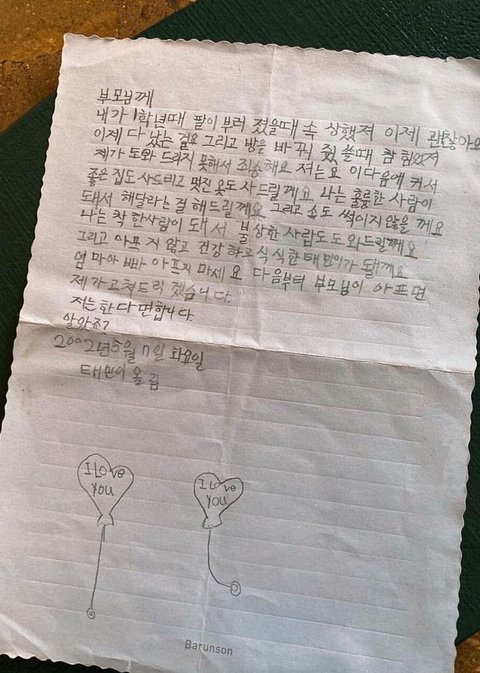 부모님께
내가 1학년때 팔이 부러 졌을때 속 상했져 이제 괜찮아요
이제 다 낳는 걸요 그리고 방을 바꾸워 줬 쓸때 참 힘었져
제가 도와 드리지 못해서 죄송해요 저는요 이다음에 커서
좋은 집도 사드리고 멋진 옷도 사드릴게요 나는 훌륭한 사람이
돼서 해달라는 걸 해드릴게요 그리고 속도 썩이지 않을 께요
나는 착 한사람이 돼서 불상한 사람도 도와드릴께요
그리고 아프 지 않고 건강 하고 씩 씩한 태민이가 될께요
엄마아 빠 아프지 마세요 다음부터 부모님이 아프면
제가 고쳐드리 겠습니다.
저는 한다면 합니다.
알았죠?
2002년 5월 7일 화요일
태민이 올림
I Love
You
I Love
You
Barunson